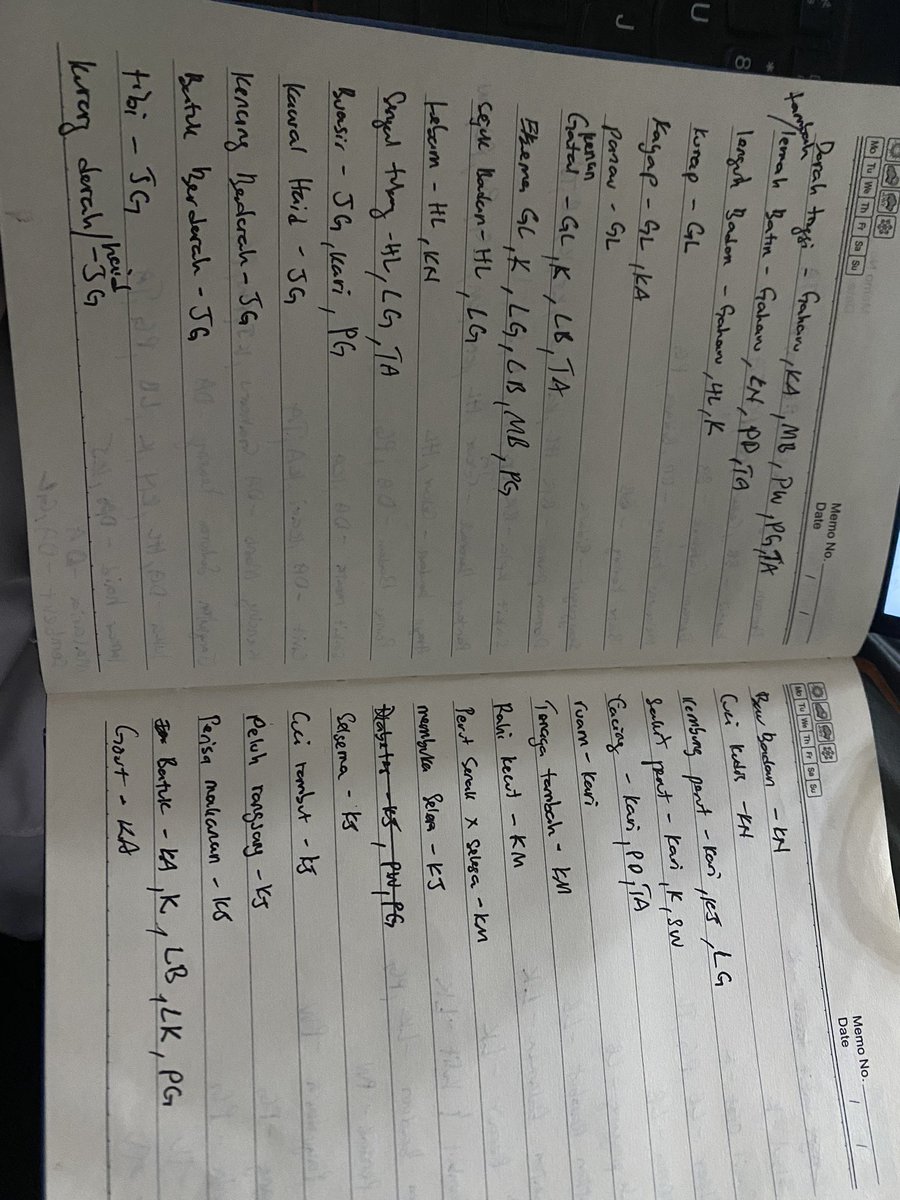 Memo No.
Date / /
Mo Tu We Th Fr Sa Su
Darah tinggi - Gaharu, KA, MB, PW, PG, TA
tambah/lemah Batin - Gaharu, KN, PD, TA
lenguh Badan - Gaharu, HL, K
Kurap - GL
Kayap - GL, KA
Panau - GL
Gatal - GL, K, LB, TA
Ekzema GL, K, LG, LB, MB, PG
Sejuk Badan - HL, LG
Lebam - HL, KN
Sengal tulang - HL, LG, TA
Buasir - JG, Kari, PG
Kawal Haid - JG
Kencing Berdarah - JG
Batuk Berdarah - JG
tibi - JG
kurang darah/haid - JG
Memo No.
Date / /
Mo Tu We Th Fr Sa Su
Bau badan - KN
Cuci kudis - KN
Kembung perut - Kari, KJ, LG
Sakit perut - Kari, K, SW
Cacing - Kari, PD, TA
ruam - Kari
Tenaga tambah - KM
Rahi kecut - KM
Perut Senak x Selesa - KM
membuka Selera - KJ
Diabetes - KJ, PW, PG
Selsema - KJ
Cuci rambut - KJ
Peluh rangsang - KJ
Perisa makanan - KJ
Batuk - KA, K, LB, LK, PG
Gout - KA